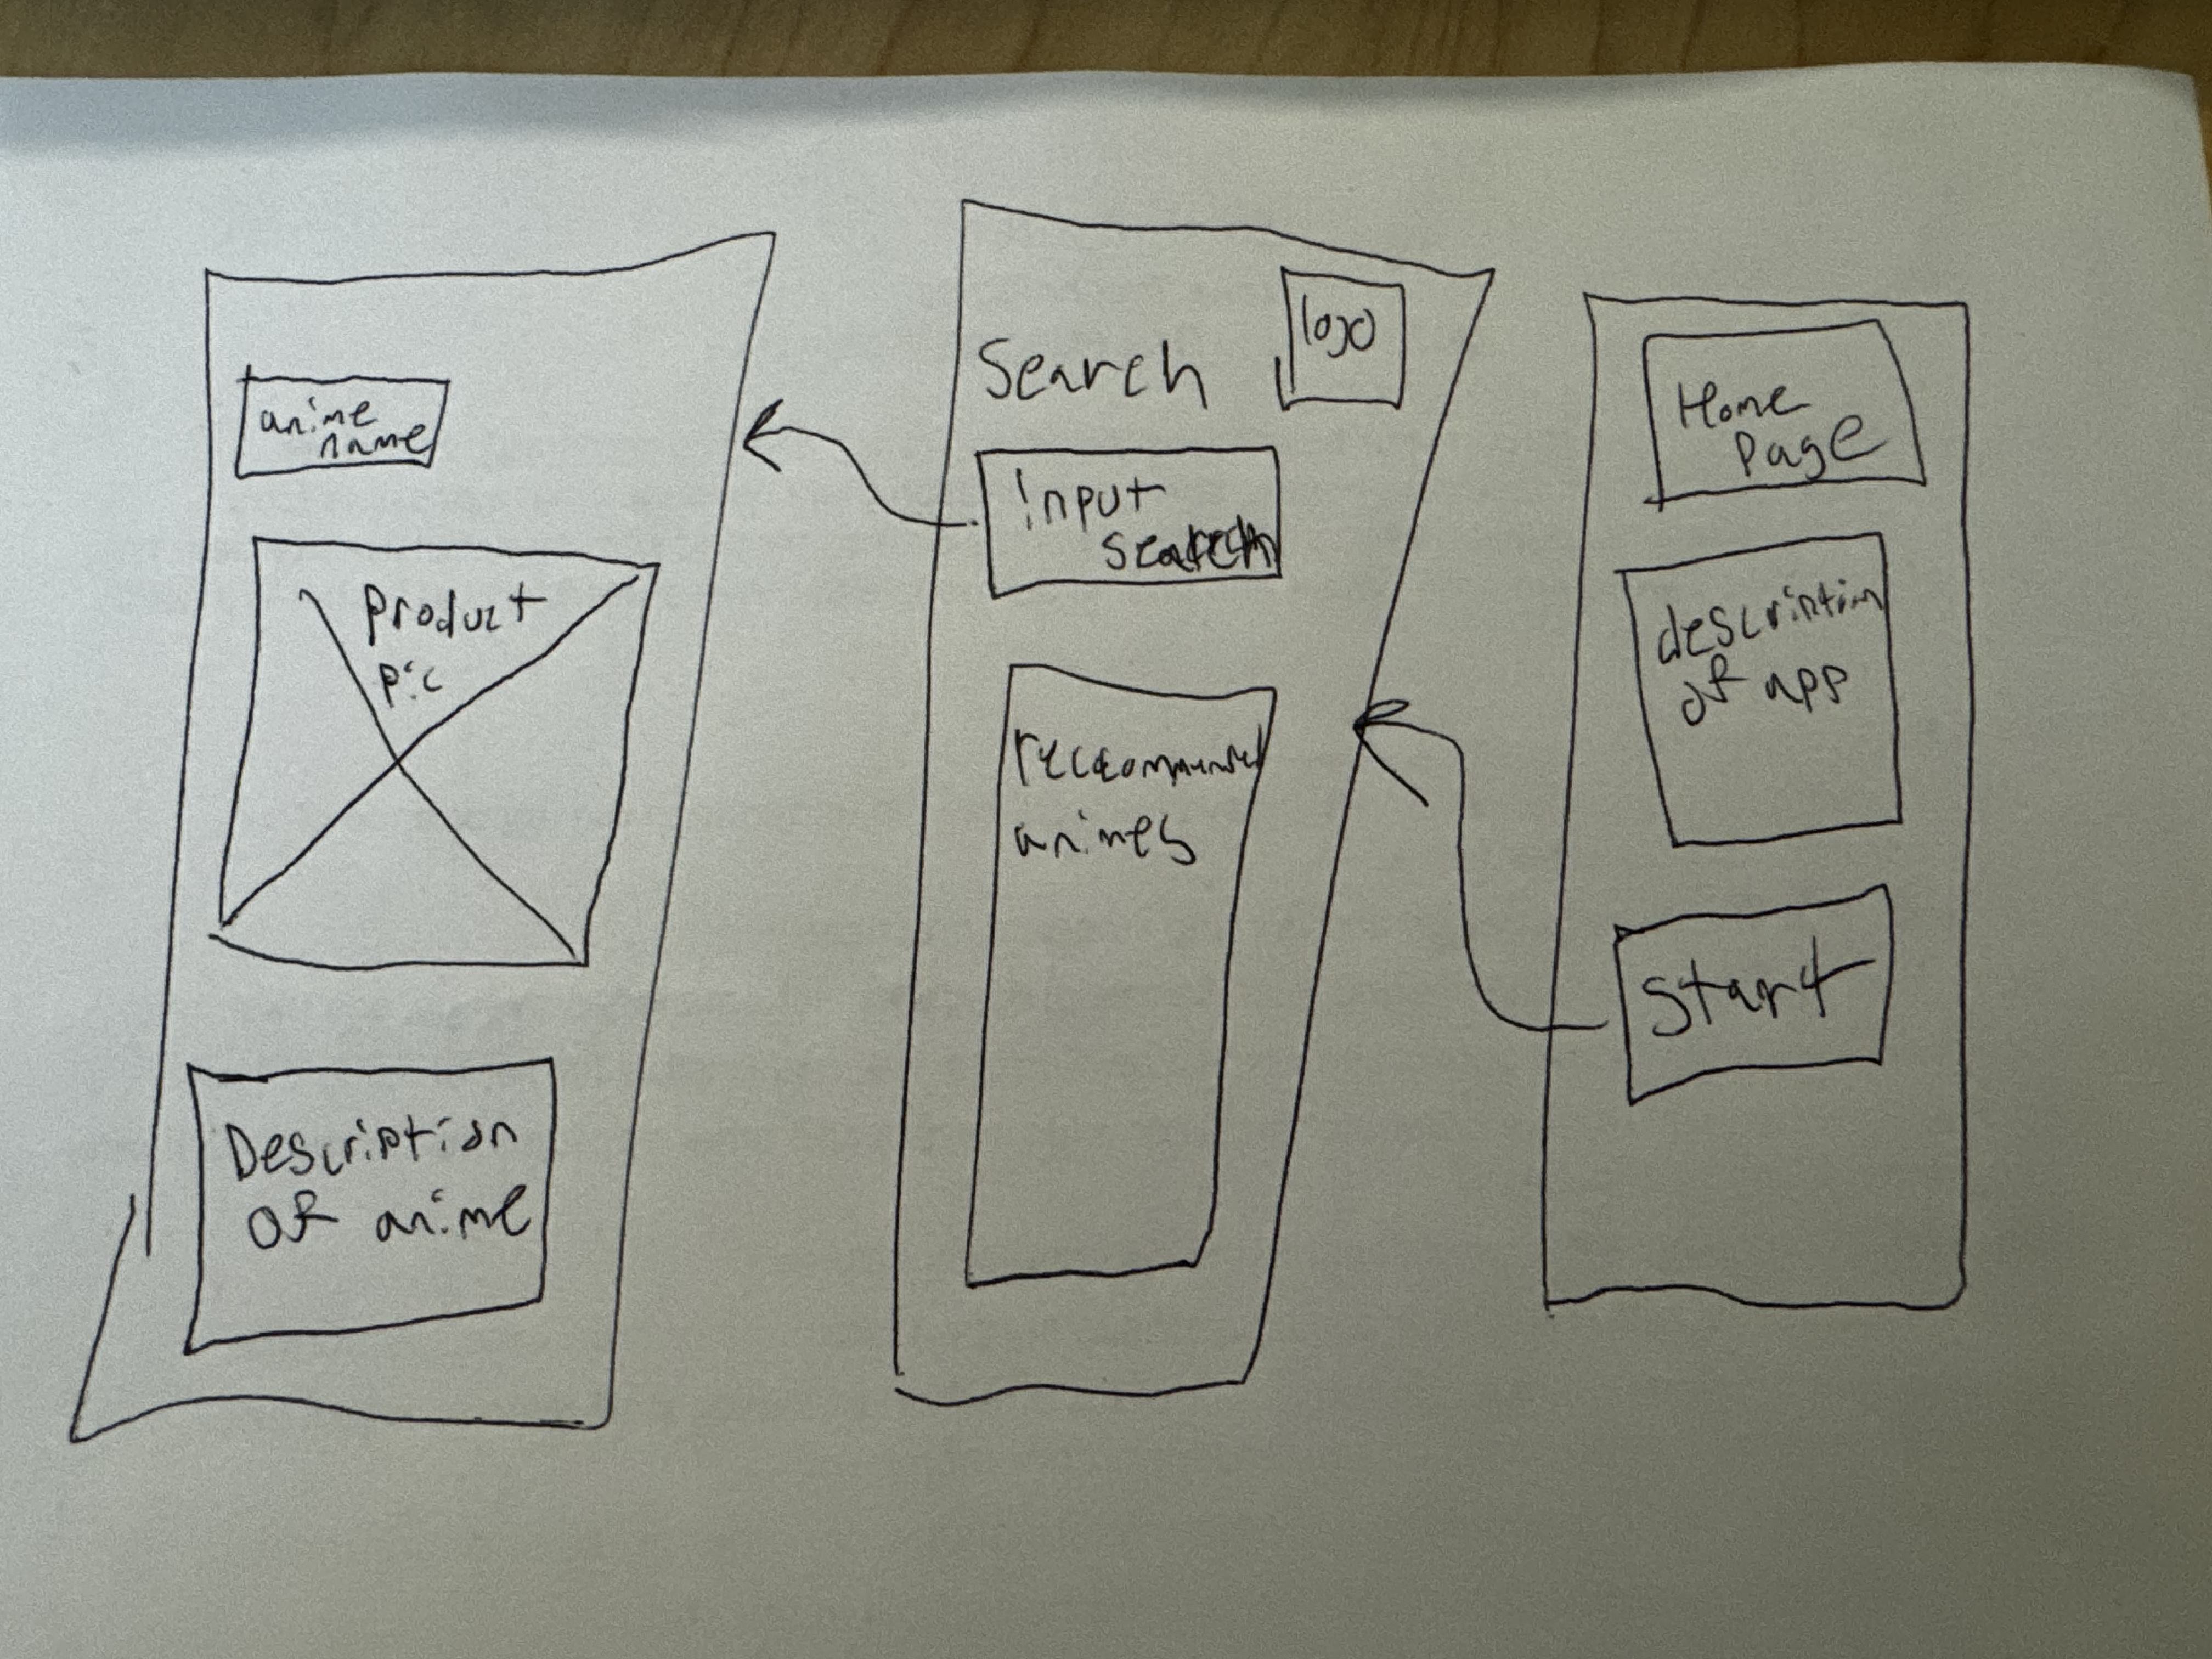 anime
name
product
pic
Description
of anime
Search
logo
input
search
reccommended
animes
Home
Page
description
of app
Start